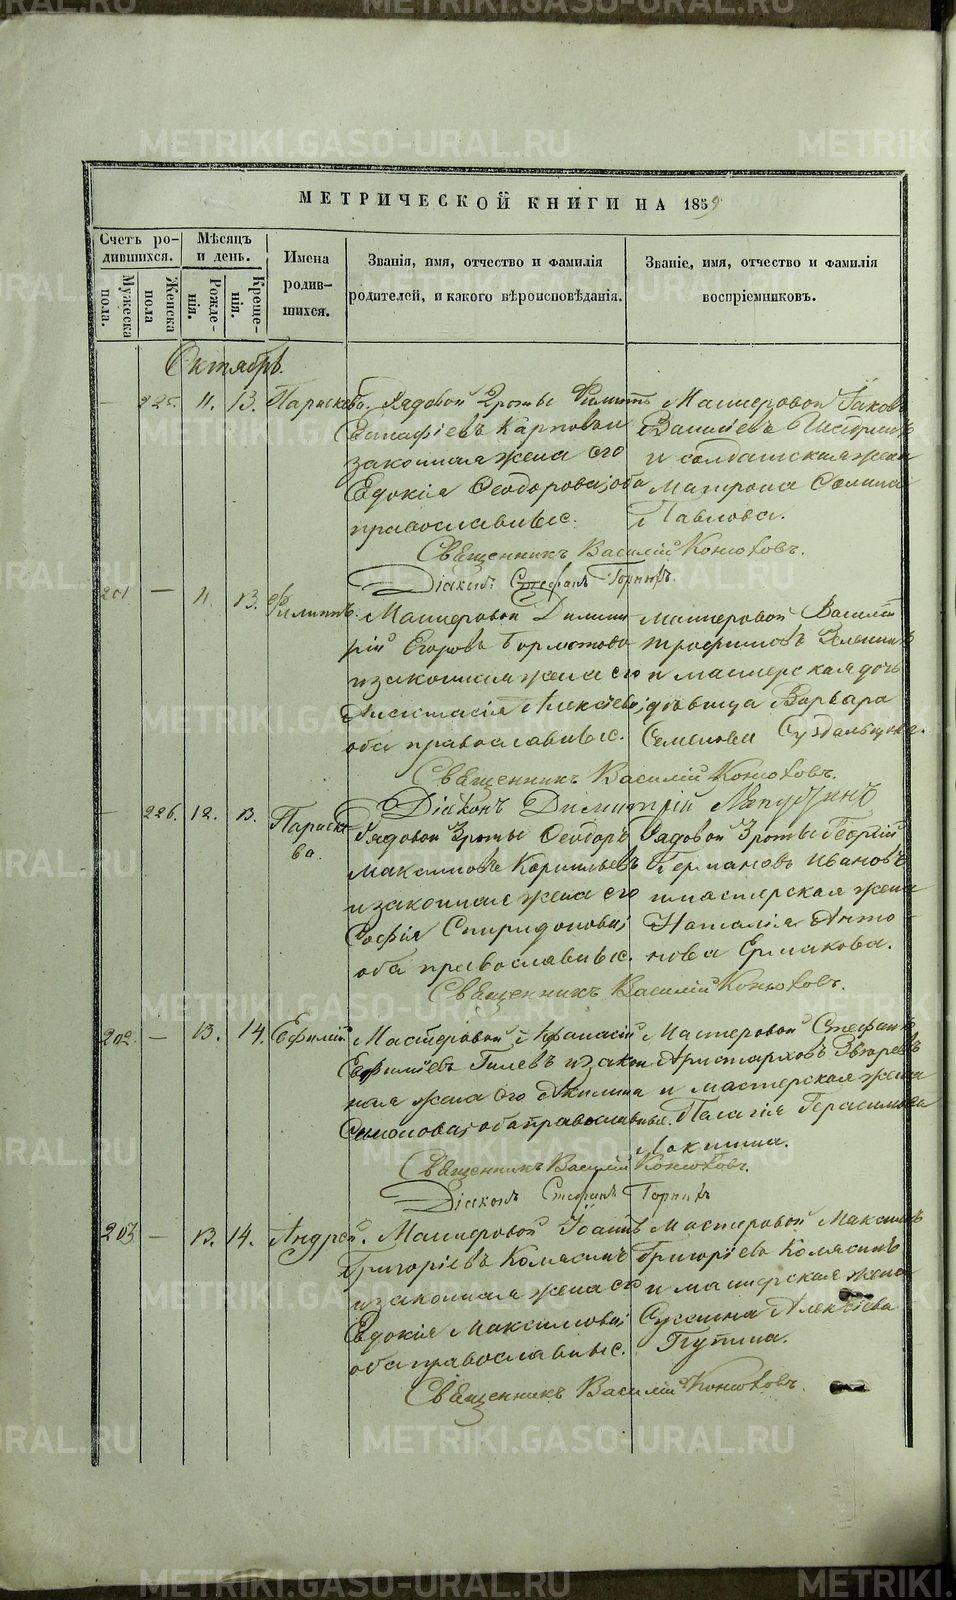 МЕТРИЧЕСКОЙ КНИГИ НА 1859
Счетъ родившихся.
Мужеска пола.
Женска пола
Мѣсяцъ и день.
Рожденія.
Крещенія.
Имена родившихся.
Званія, имя, отчество и фамилія родителей, и какого вѣроисповѣданія.
Званіе, имя, отчество и фамилія воспріемниковъ.
Октябрь.
225. 11. 13. Параскева. Рядовой 2 роты Филиппъ
Евстафіевъ Карповъ и
законная жена его
Евдокія Ѳеодорова; оба
православные.
Мастеровой Іаковъ
Василіевъ
и солдатская жена
Матрона
Павлова.
Священникъ Василій Конюховъ.
Діаконъ Стефанъ Горныхъ.
201 — 11. 13. Филиппъ. Мастеровой Димит-
рій Егоровъ
и законная жена его
Анастасія Алексѣева;
оба православные.
Мастеровой Василій
Трофимовъ
и мастерская дочь
дѣвица Варвара
Семенова
Священникъ Василій Конюховъ.
Діаконъ Димитрій
— 226. 12. 13. Параске-
ва.
Рядовой 3 роты Ѳеодоръ
Максимовъ Корнильевъ
и законная жена его
Софія Спиридонова;
оба православные.
Рядовой 3 роты Георгій
Германовъ Ивановъ
и мастерская жена
Наталія Анто-
нова Ермакова.
Священникъ Василій Конюховъ.
202. — 13. 14. Ефимій. Мастеровой Афанасій
Ефиміевъ Гилевъ и закон-
ная жена его Акилина
Самсонова; оба православные.
Мастеровой Стефанъ
Аристарховъ Звѣревъ
и мастерская жена
Палагія Герасимова
Локшина.
Священникъ Василій Конюховъ.
Діаконъ Стефанъ Горныхъ
203 — 13. 14. Андрей. Мастеровой Іоаннъ
Григоріевъ Комясинъ
и законная жена его
Евдокія Максимова;
оба православные.
Мастеровой Максимъ
Григоріевъ Комясинъ
и мастерская жена
Сусанна Алексіева
Пупина.
Священникъ Василій Конюховъ.
METRIKI.GASO-URAL.RU